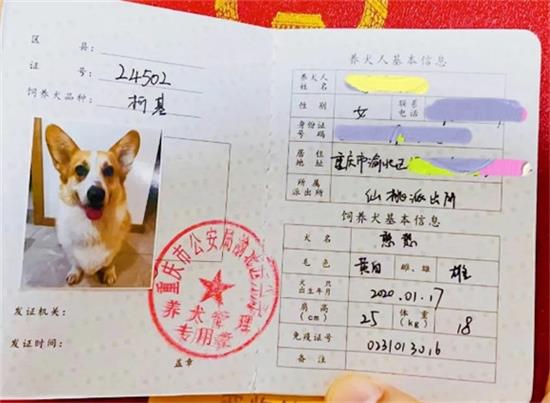 区 县:
证 号: 24502
饲养犬品种: 柯基
发证机关:
发证时间:
盖章
重庆市公安局渝北区分局
养犬管理
专用章
养犬人基本信息
养犬人姓名
性别 女 联系电话
身份证号码
居住地址 重庆市渝北区
所属派出所 仙桃派出所
饲养犬基本信息
犬名 憨憨
毛色 黄白 雌、雄 雄
犬只出生年月 2020.01.17
肩高(cm) 25 体重(kg) 18
免疫证号 0231013016
备注